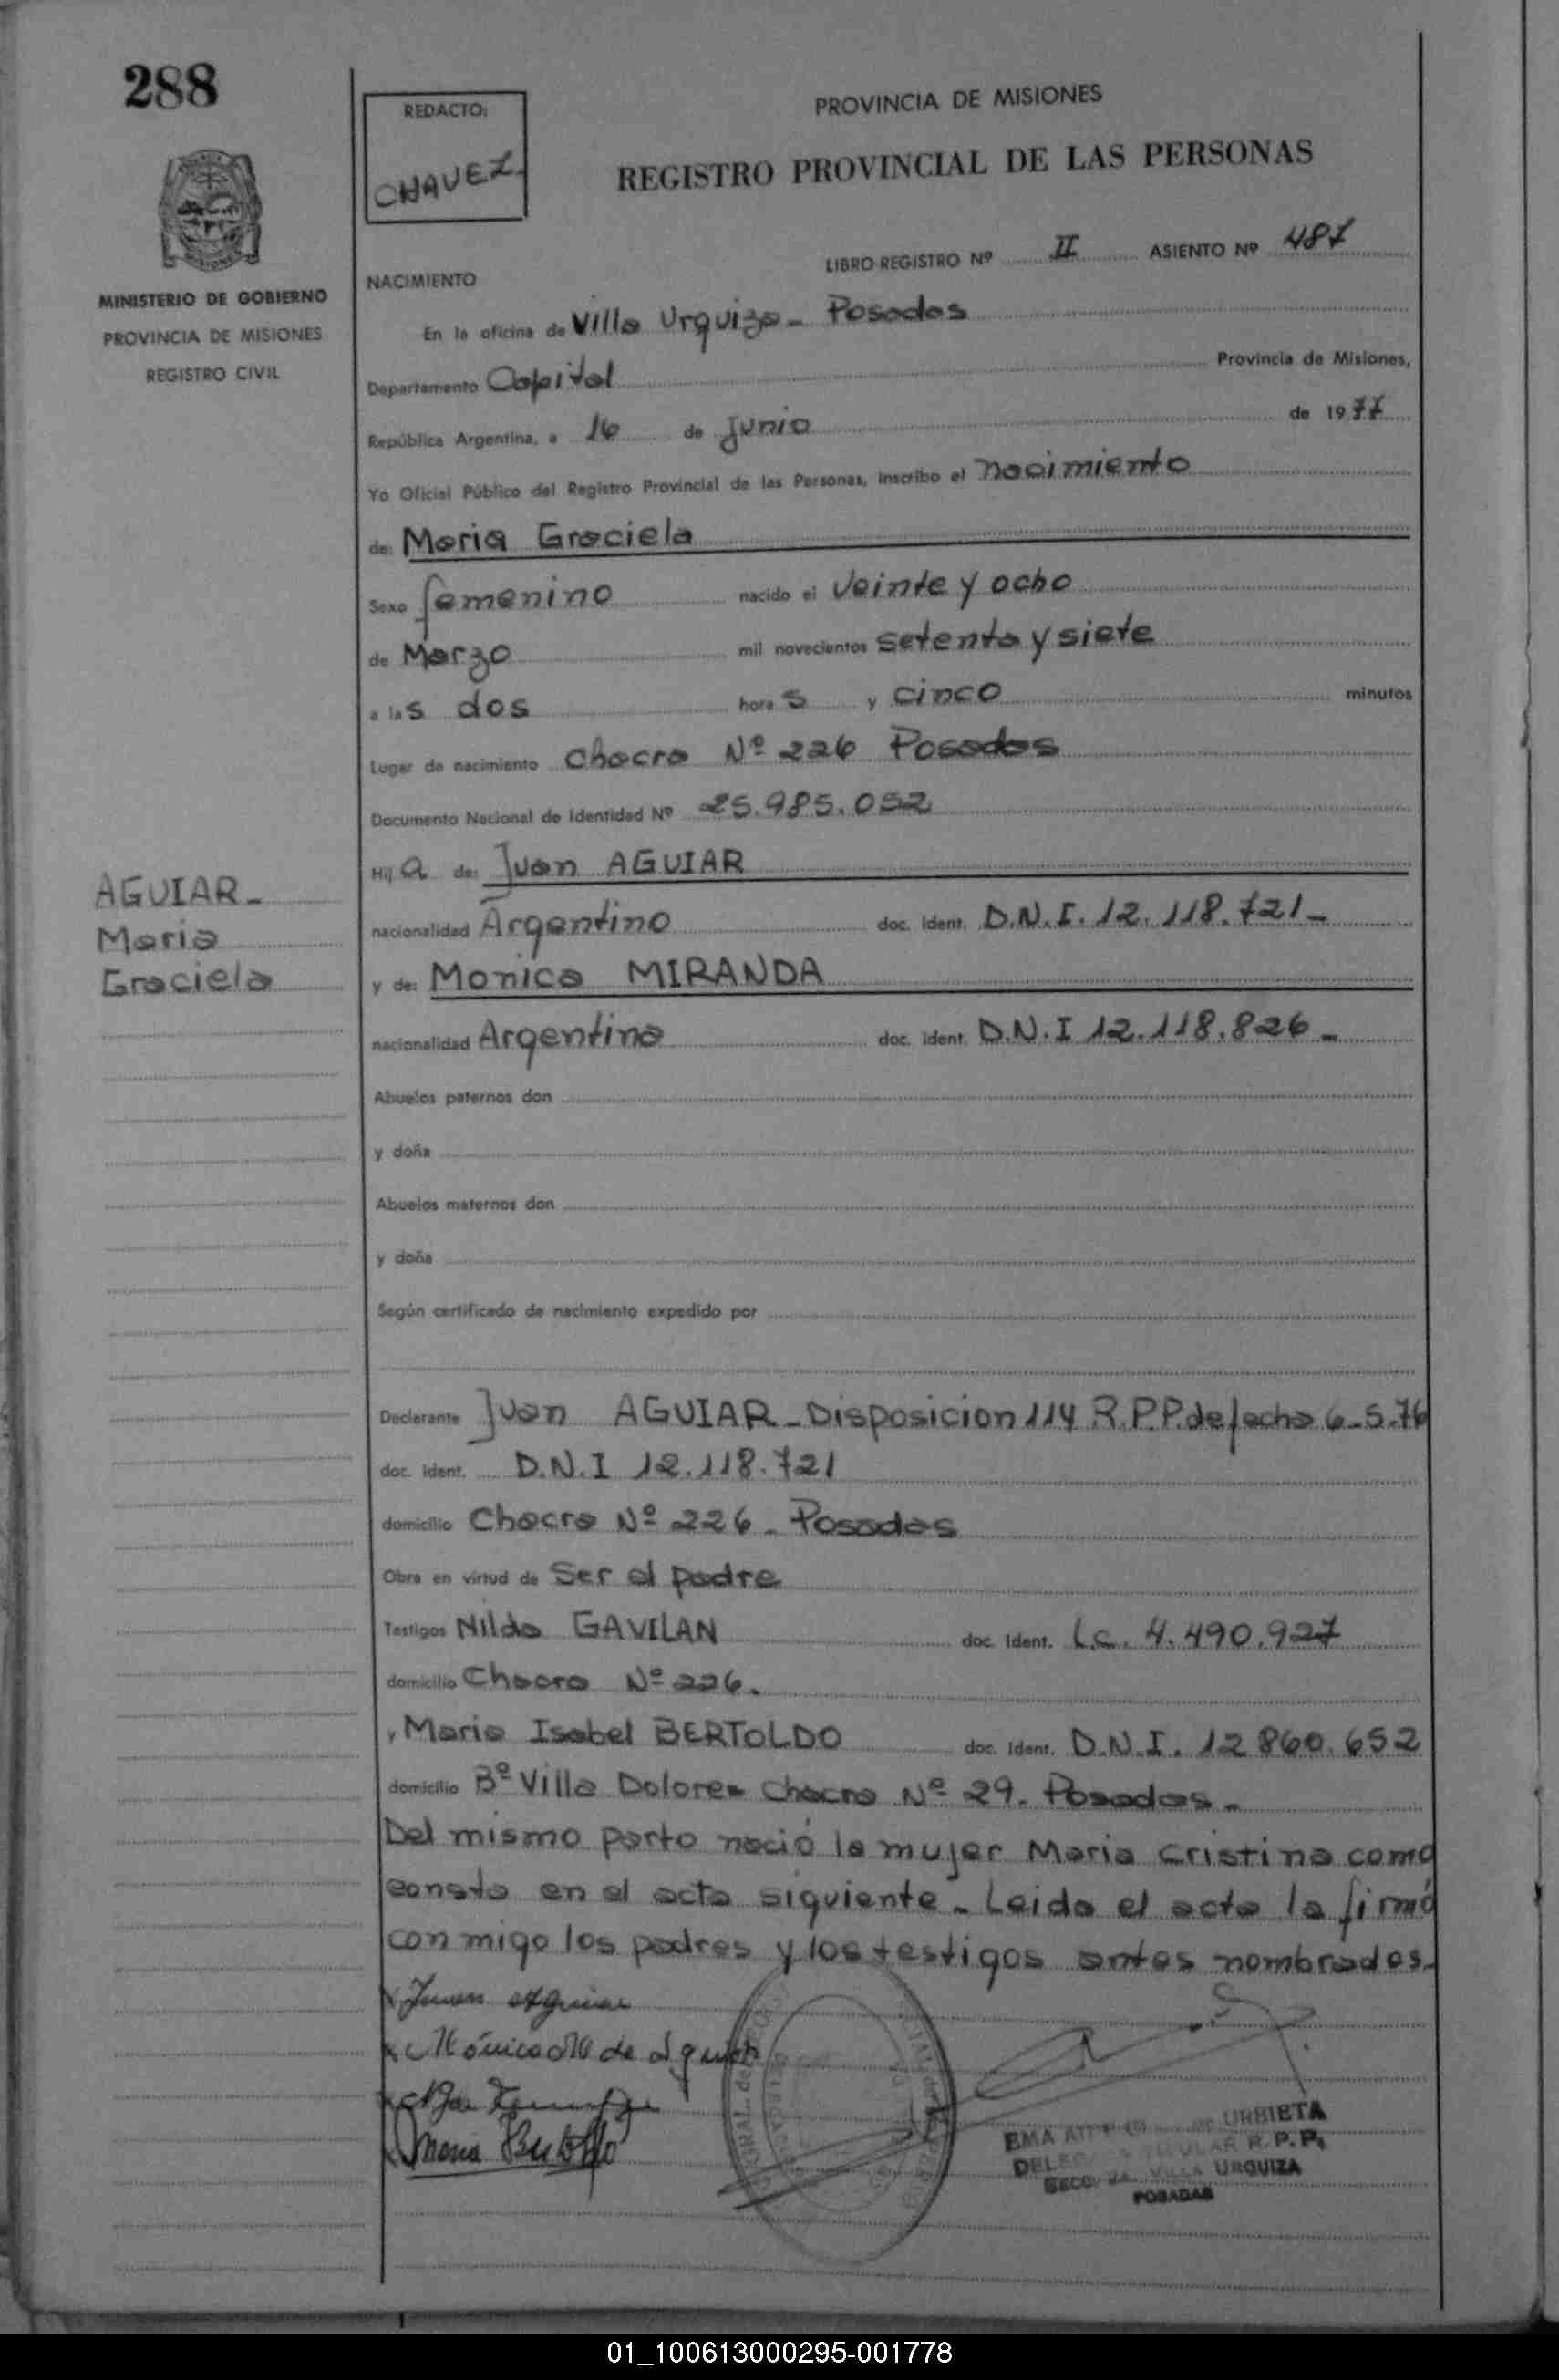 288
REDACTO:
CHAVEZ
PROVINCIA DE MISIONES
REGISTRO PROVINCIAL DE LAS PERSONAS
MINISTERIO DE GOBIERNO
PROVINCIA DE MISIONES
REGISTRO CIVIL
LIBRO REGISTRO Nº II ASIENTO Nº 487
NACIMIENTO
En la oficina de Villa Urquiza - Posadas
Departamento Capital Provincia de Misiones,
República Argentina, a 16 de Junio de 1977
Yo Oficial Público del Registro Provincial de las Personas, inscribo el nacimiento
de: Maria Graciela
Sexo femenino nacido el Veinte y ocho
de Marzo mil novecientos setenta y siete
a las dos horas y cinco minutos
Lugar de nacimiento Chacra Nº 226 Posadas
Documento Nacional de Identidad Nº 25.985.052
Hija de: Juan AGUIAR
nacionalidad Argentino doc. Ident. D.N.I. 12.118.721-
AGUIAR-
Maria
Graciela
y de: Monica MIRANDA
nacionalidad Argentina doc. Ident. D.N.I 12.118.826-
Abuelos paternos don
y doña
Abuelos maternos don
y doña
Según certificado de nacimiento expedido por
Declarante Juan AGUIAR-Disposicion 114 R.P.P. de fecha 6-5-76
doc. Ident. D.N.I 12.118.721
domicilio Chacra Nº 226- Posadas
Obra en virtud de Ser el padre
Testigos Nilda GAVILAN doc. Ident. L.C. 4.490.927
domicilio Chacra Nº 226.
y Maria Isabel BERTOLDO doc. Ident. D.N.I. 12 860.652
domicilio Bº Villa Dolores Chacra Nº 29. Posadas-
Del mismo parto nació la mujer Maria Cristina como
consta en el acta siguiente- Leida el acta la firmó
con migo los padres y los testigos antes nombrados-
Juan Aguiar
Mónica M de Aguiar
Maria Bertoldo
EMA URBIETA
R.P.P.
SECC. VILLA URQUIZA
POSADAS
01_100613000295-001778